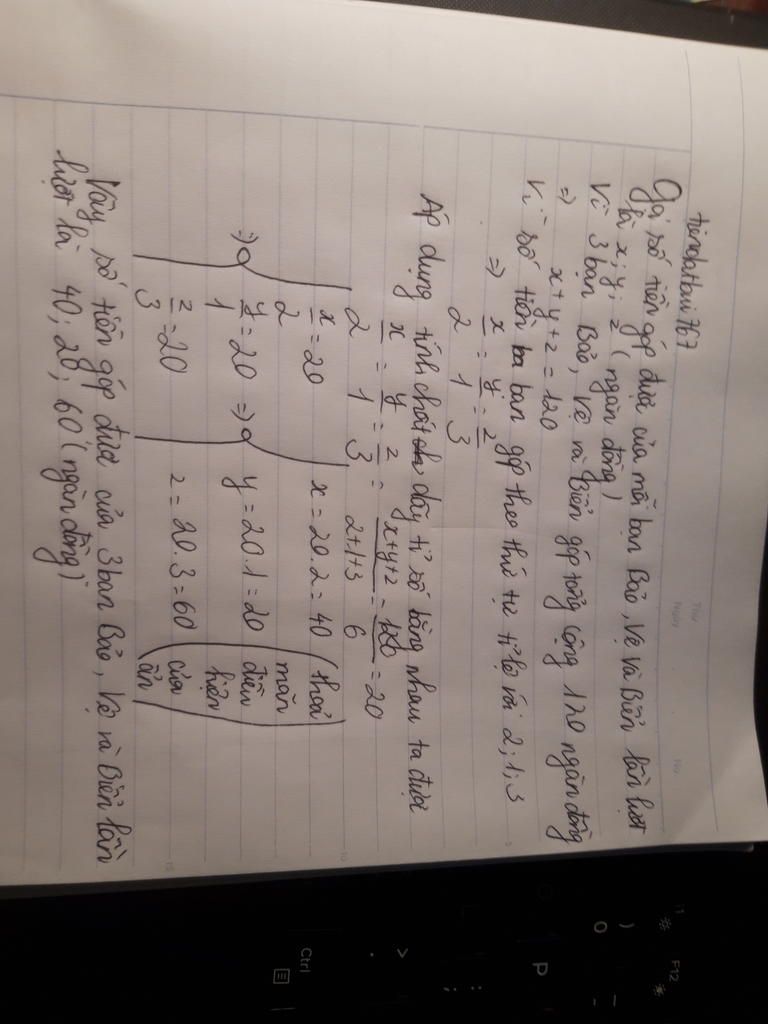 tiendatbui767
Gọi số tiền góp được của mỗi bạn Bảo, Vệ và Biển lần lượt
là x; y; z (ngàn đồng)
Vì 3 bạn Bảo, Vệ và Biển góp tổng cộng 120 ngàn đồng
=> x+y+z = 120
Vì số tiền ba bạn góp theo thứ tự tỉ lệ với 2; 1; 3
=> x/2 = y/1 = z/3
Áp dụng tính chất dãy tỉ số bằng nhau ta được
x/2 = y/1 = z/3 = x+y+z/2+1+3 = 120/6 = 20
x/2 = 20 x = 20.2 = 40 (thoả
=> y/1 = 20 => y = 20.1 = 20 mãn điều
z/3 = 20 z = 20.3 = 60 kiện của ẩn)
Vậy số tiền góp được của 3 bạn Bảo, Vệ và Biển lần
lượt là 40; 20; 60 (ngàn đồng)
Thứ
Ngày
No.
5
10
15
F12
)
0
P
>
.
:
;
Ctrl